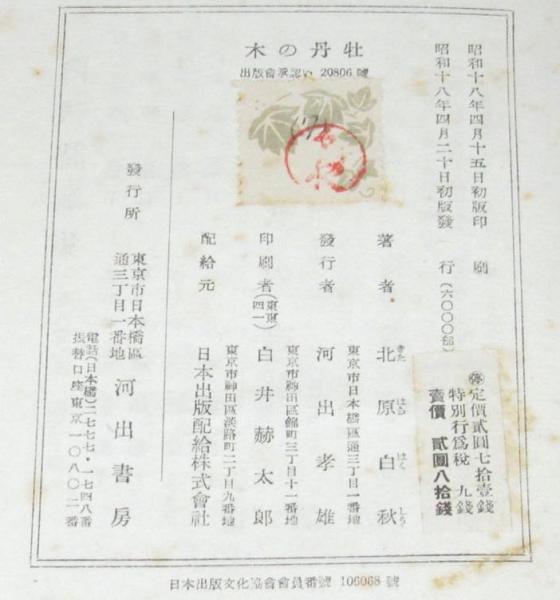 牡丹の木
出版會承認い 20806 號
昭和十八年四月十五日初版印刷
昭和十八年四月二十日初版發行(六〇〇〇部)
㊡定價貳圓七拾壹錢
特別行爲稅 九錢
賣價 貳圓八拾錢
著者 北原白秋
きたはらはくしう
東京市日本橋區通三丁目一番地
發行者 河出孝雄
東京市神田區錦町三丁目十一番地
印刷者(東東四一) 白井赫太郎
東京市神田區淡路町二丁目九番地
配給元 日本出版配給株式會社
發行所
東京市日本橋區
通三丁目一番地
河出書房
電話(日本橋)二七七七・一七四八番
振替口座東京一〇八〇二番
日本出版文化協會會員番號 106068 號